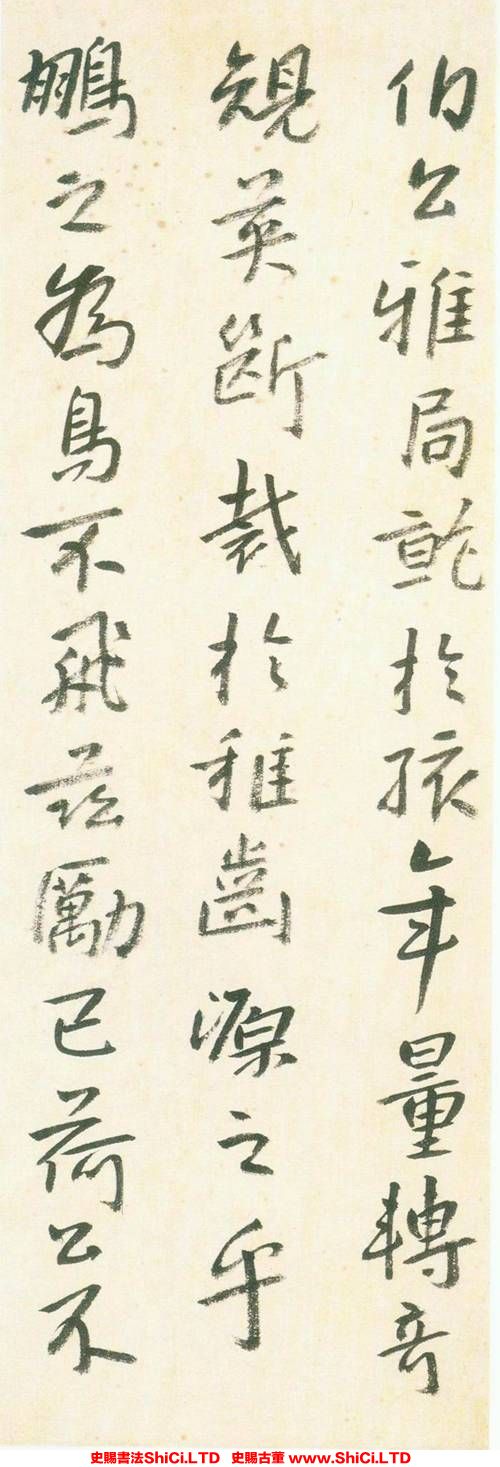 伯公雅局於孩年量轉奇
規英斷裁於稚齒源之乎
鵬之為鳥不飛茲勵已荷公不
史賜書法ShiCi.LTD 史賜古董 www.ShiCi.LTD